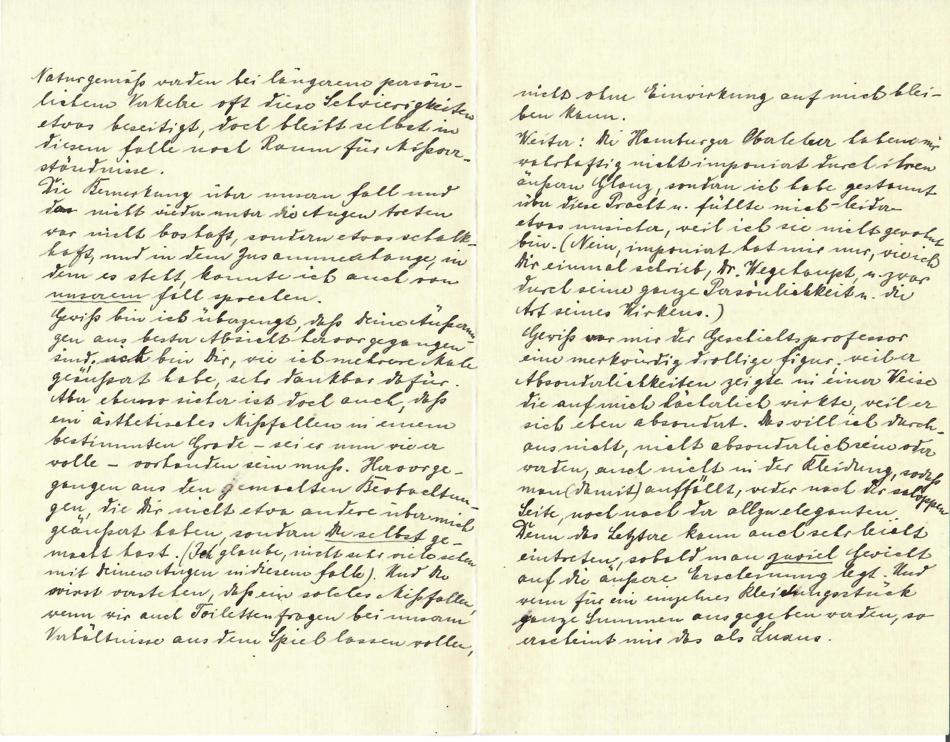 Naturgemäß werden bei längerem persön-
lichem Verkehr oft diese Schwierigkeiten
etwas beseitigt, doch bleibt selbst in
diesem Falle noch Raum für Missver-
ständnisse.
Die Bemerkung über unsern Fall und
das nicht wieder unter die Augen treten
war nicht boshaft, sondern etwas schalk-
haft, und in dem Zusammenhange, in
dem es steht, konnte ich auch von
unserem Fall sprechen.
Gewiß bin ich überzeugt, daß Deine Äußerun-
gen aus bester Absicht hervorgegangen
sind, bin Dir, wie ich mehrere Male
geäußert habe, sehr dankbar dafür.
Aber ebenso sicher ist doch auch, daß
ein ästhetisches Missfallen in einem
bestimmten Grade – sei er nun wie er
wolle – vorhanden sein muss. Hervorge-
gangen aus den gemachten Beobachtun-
gen, die Dir nicht etwa andere über mich
geäußert haben, sondern Du selbst ge-
macht hast. (Ich glaube, nicht sehr viele sehen
mit Deinen Augen in diesem Falle). Und Du
wirst verstehen, daß ein solches Missfallen,
wenn wir auch Toilettenfragen bei unserm
Verhältnisse aus dem Spiel lassen wollen,
nicht ohne Einwirkung auf mich blei-
ben kann.
Weiter: Die Hamburger Oberlehrer haben mir
wahrhaftig nicht imponiert durch ihren
äußern Glanz, sondern ich habe gestaunt
über diese Pracht u. fühlte mich leider
etwas unsicher, weil ich sie nicht gewohnt
bin. (Nein, imponiert hat mir nur, wie ich
Dir einmal schrieb, Dr. Wegehaupt, u. zwar
durch seine ganze Persönlichkeit u. die
Art seines Wirkens.)
Gewiß war mir der Geschichtsprofessor
eine merkwürdig drollige Figur, weil er
Absonderlichkeiten zeigte in einer Weise
die auf mich lächerlich wirkte, weil er
sich eben absondert. Das will ich durch-
aus nicht, nicht absonderlich sein oder
werden, auch nicht in der Kleidung, sodaß
man (damit) auffällt, weder nach der saloppen
Seite, noch nach der allzu eleganten.
Denn das Letztere kann auch sehr leicht
eintreten, sobald man zuviel Gewicht
auf die äußere Erscheinung legt. Und
wenn für ein einzelnes Kleidungsstück
ganze Summen ausgegeben werden, so
erscheint mir das als Luxus.